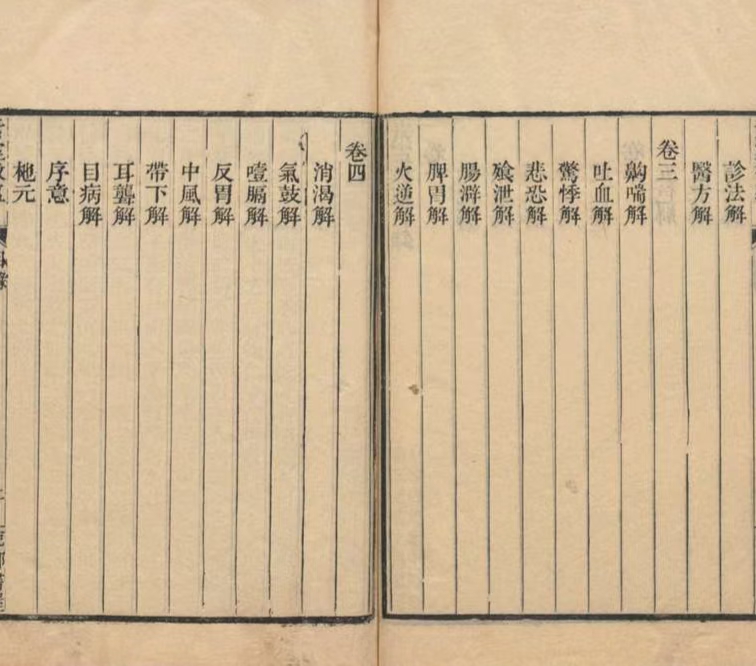 診法解
醫方解
卷三
齁喘解
吐血解
驚悸解
悲恐解
飱泄解
腸澼解
脾胃解
火逆解
卷四
消渴解
氣鼓解
噎膈解
反胃解
中風解
帶下解
耳聾解
目病解
序意
杝元